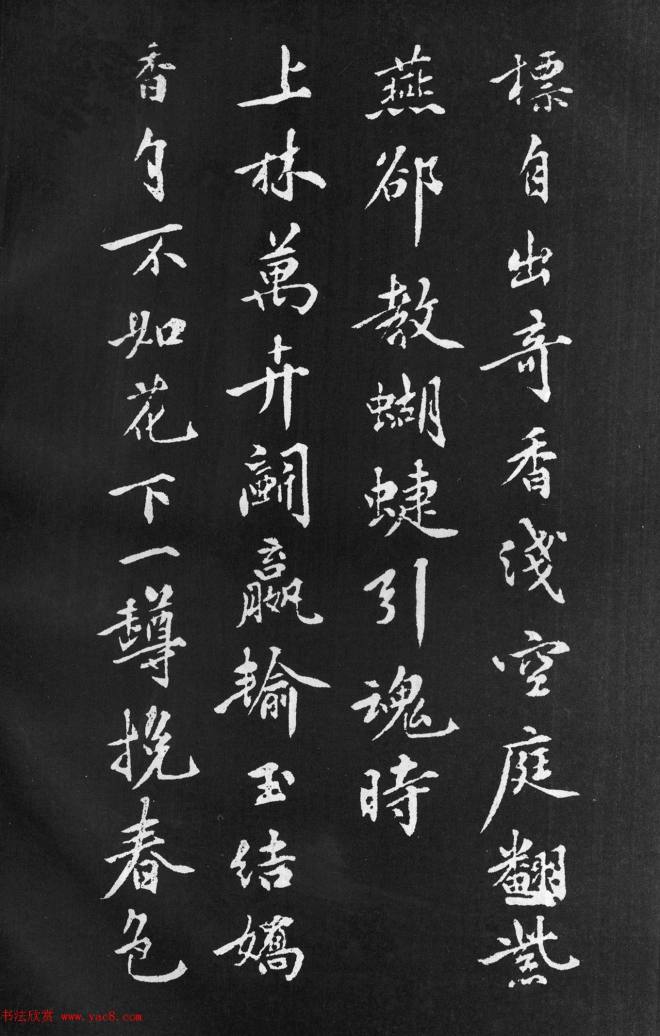 標自出奇香淺空庭翻紫
燕卻教蝴蝶引魂時
上林萬卉鬪贏輸玉結嬌
香自不如花下一罇挽春色
书法欣赏 www.yac8.com